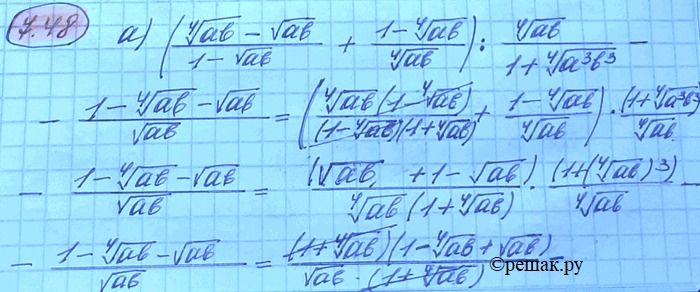 7.48 а) ((⁴√ab − √ab)/(1 − √ab) + (1 − ⁴√ab)/⁴√ab) : ⁴√ab/(1 + ⁴√a³b³) −
− (1 − ⁴√ab − √ab)/√ab = (⁴√ab (1 − ⁴√ab)/((1 − ⁴√ab)(1 + ⁴√ab)) + (1 − ⁴√ab)/⁴√ab) · (1 + ⁴√a³b³)/⁴√ab
− (1 − ⁴√ab − √ab)/√ab = (√ab + 1 − √ab)/(⁴√ab (1 + ⁴√ab)) · (1 + (⁴√ab)³)/⁴√ab −
− (1 − ⁴√ab − √ab)/√ab = (1 + ⁴√ab)(1 − ⁴√ab + √ab)/(√ab · (1 + ⁴√ab)) −
©решак.ру